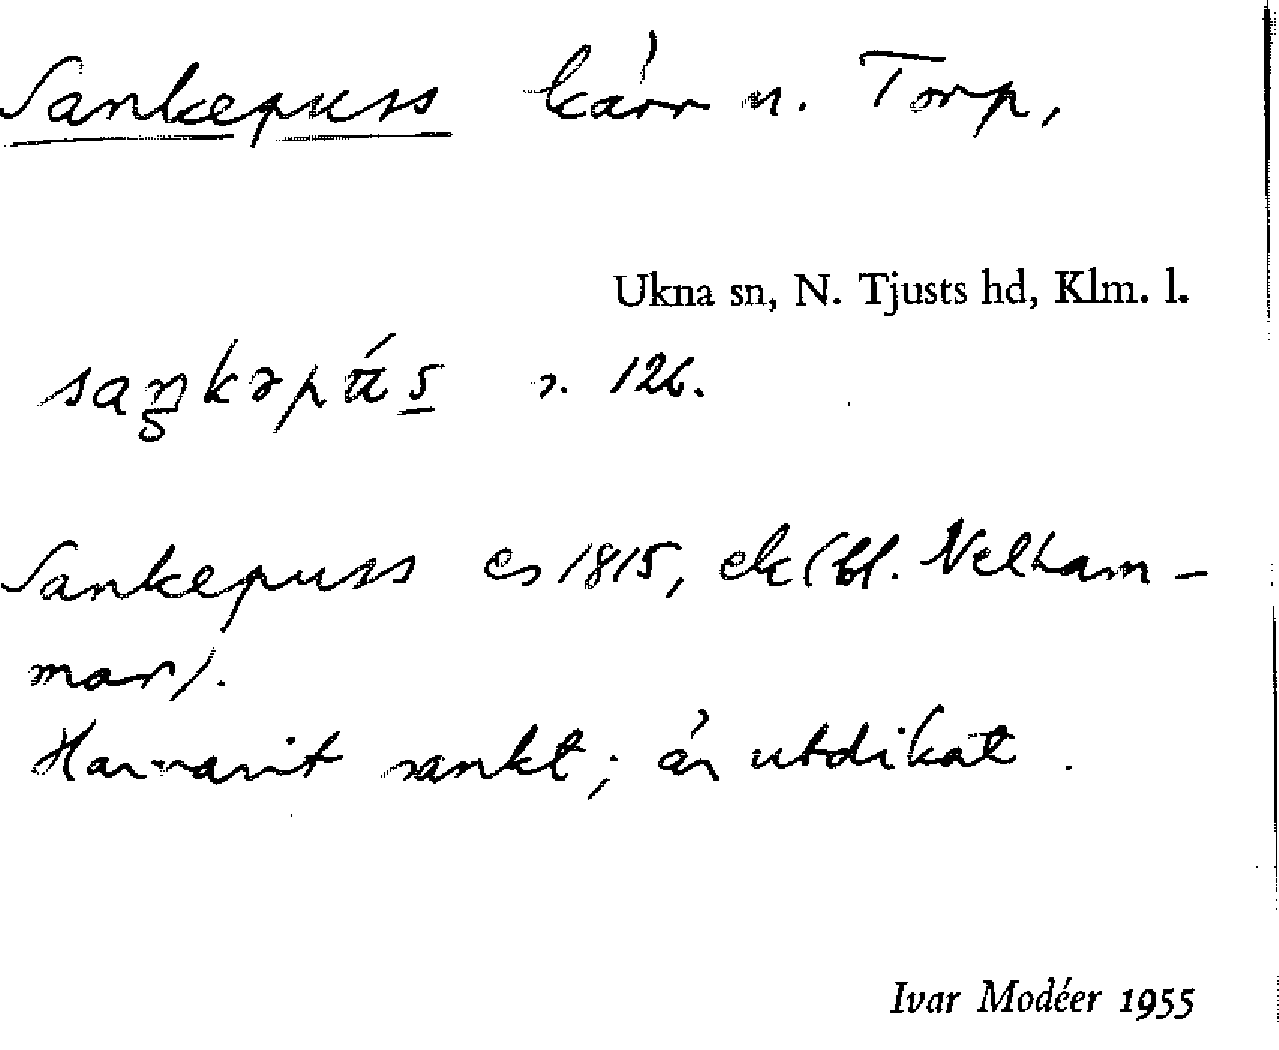 Sankepuss kärr n. Torp,
Ukna sn, N. Tjusts hd, Klm. l.
s. 126.
Sankepuss es 1815, ek (bl. Nelham-
mar).
Har varit sankt; är utdikat.
Ivar Modéer 1955